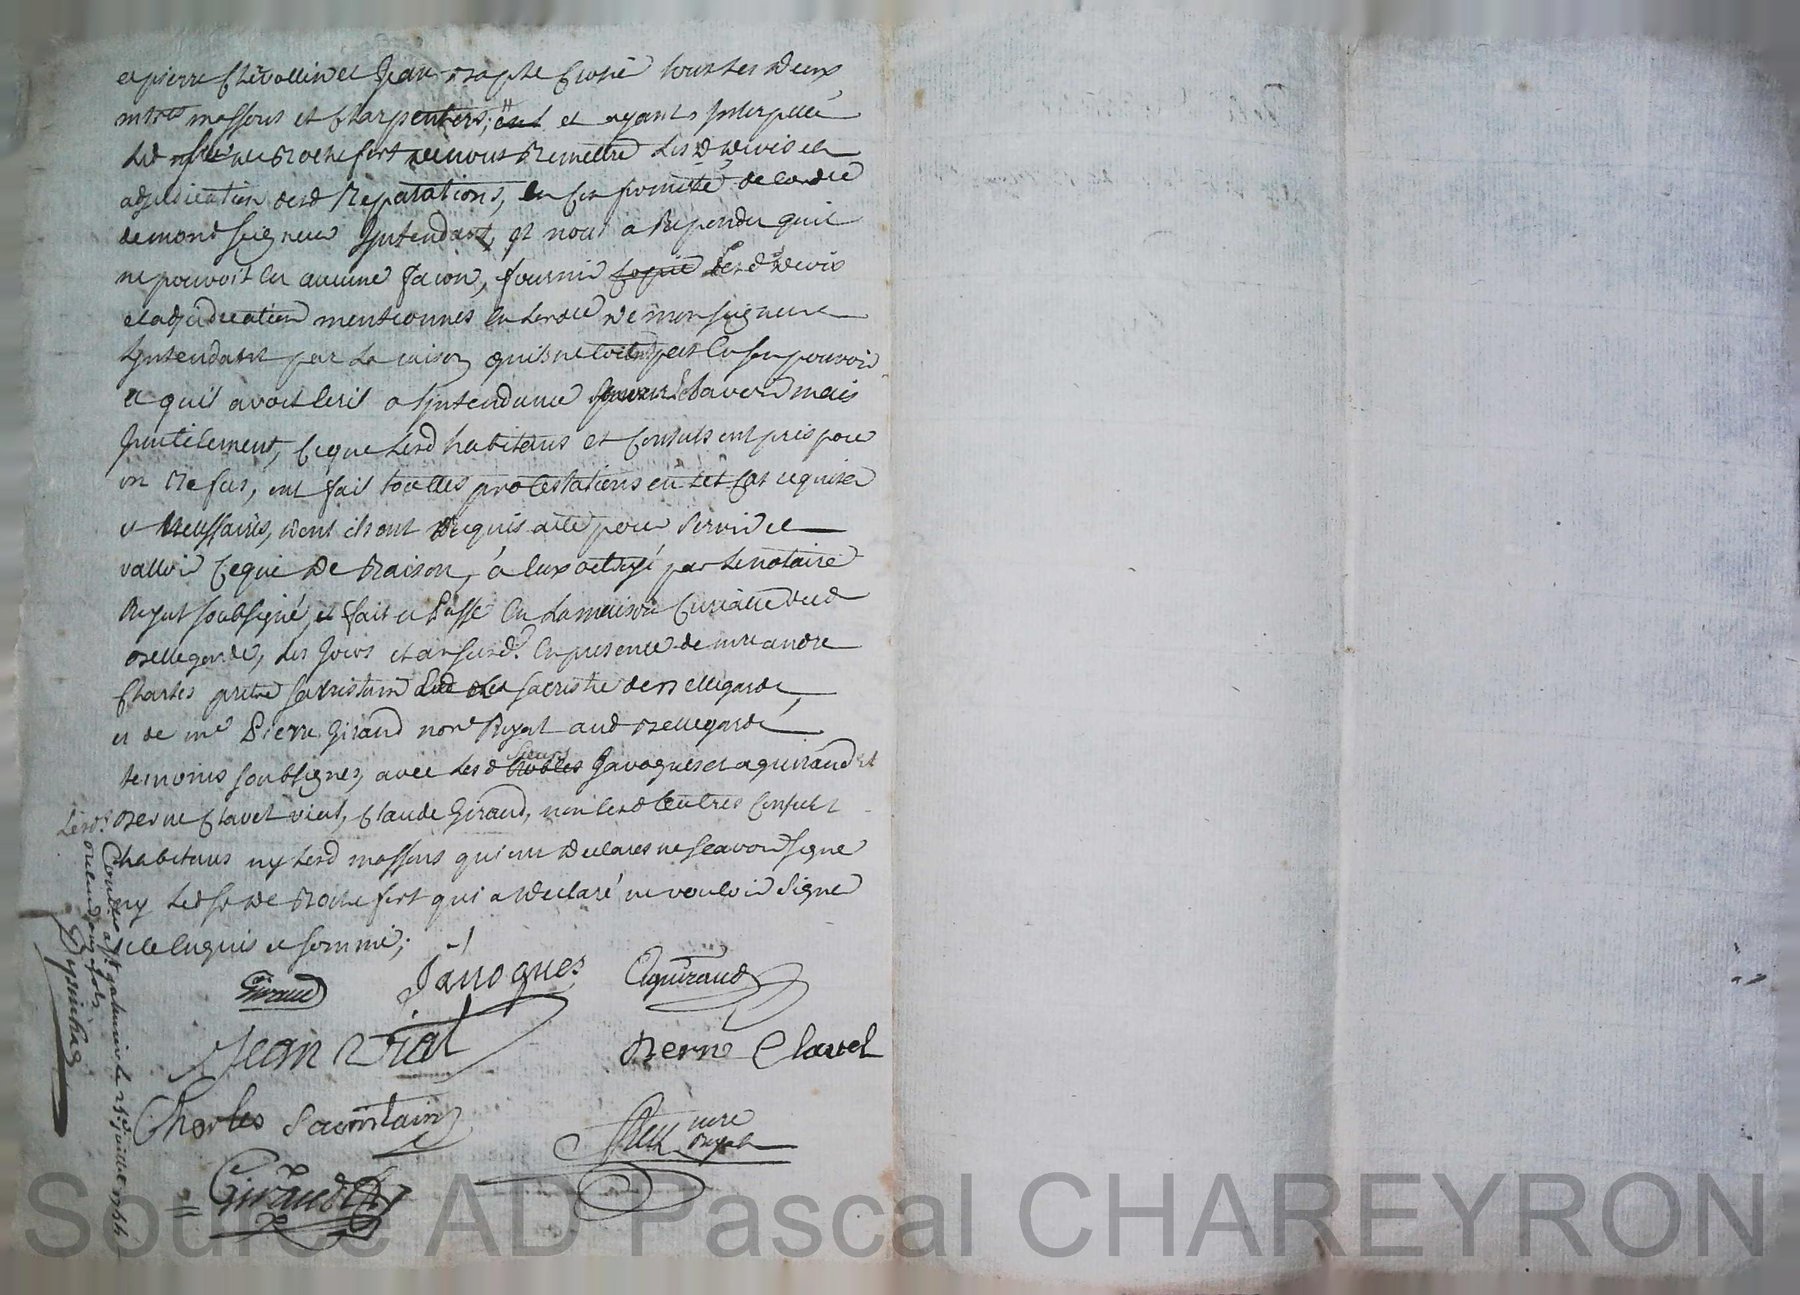 et pierre Chevallier et Jean Bapte tous les deux
mtres massons et Charpentiers, et ayants Interpellé
Led de Rochefort de nous Remettre Lesd devis et
adjudication desd Reparations, en Conformité de Lordre
de mond seigneur Intendant, et nous a Repondu quil
ne pouvoit en aucune facon, fournir Copie desd devis
et adjudication mentionnés en Lordre de monseigneur
Lyntendant par La raison quils ne en son pouvoir
et quil avoit Ecrit a Lyntendance pour mais
Inutilement, Ceque Lesd habitans et Consuls ont pris pour
un Refus, ont fait touttes protestations en tel Cas requises
et Necessaires, dont ils ont Requis acte pour Servir et
valloir Ceque de Raison, a Eux octroyé par Le notaire
Royal soubsigné, et fait et Passé En La maison Curialle dud
Bellegarde, Les Jours et an susd. En presence de mre andre
Charles pretre sacristain sacristie de Bellegarde,
et de me Pierre Giraud nore Royal aud Bellegarde
temoins soubsignez avec Lesd sieurs Javogues et aguiraud et
Lesd. Berne Clavel vial, Claude Giraud, non Lesd autres Consuls
habitans ny Lesd massons qui ont declares ne scavoir signe
ny Led sr de Rochefort qui a declaré ne vouloir signe
de ce Enquis et sommé;
Giraud Javogues Aguiraud
Jean Vial Berne Clavel
Charles Sacristain
nore Royal
Giraud
Conlle a St galmier le 25e juillet 1744